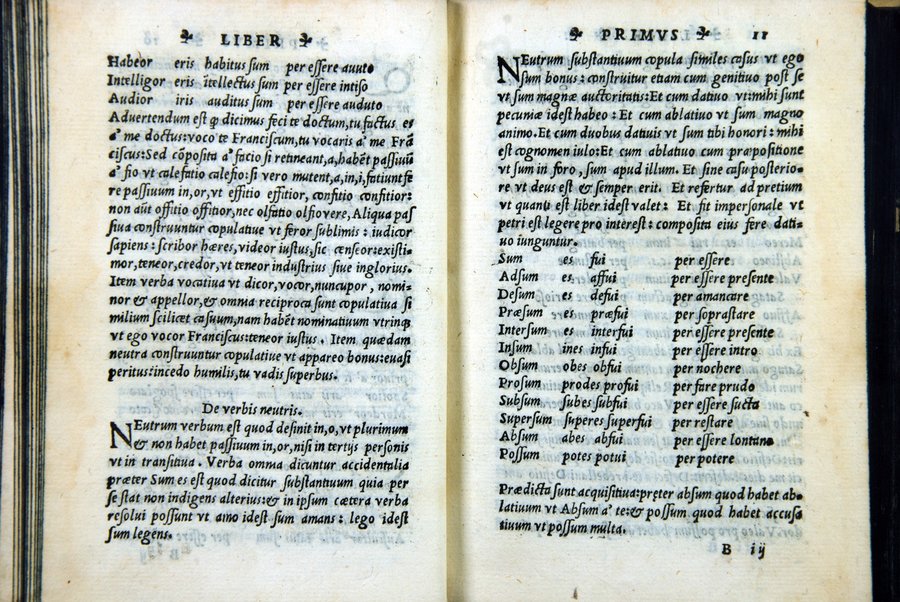 LIBER
Habeor eris habitus sum per essere auuto
Intelligor eris ītellectus sum per essere intiso
Audior iris auditus sum per essere auduto
Aduertendum est ꝙ dicimus feci te doctum, tu factus es
a' me doctus: voco te Franciscum, tu vocaris a' me Frā
ciscus: Sed cōposita a' facio si retineant, a, habēt passiuū
a' fio vt calefatio calefio: si vero mutent, a, in, i, fatiunt se
re passiuum in, or, vt effitio effitior, confitio confitior:
non aūt offitio offitior, nec olfatio olfiovere, Aliqua pas
siua construuntur copulatiue vt feror sublimis: iudicor
sapiens: scribor hæres, videor iustus, sic censeor: existi-
mor, teneor, credor, vt teneor industrius siue inglorius.
Item verba vocatiua vt dicor, vocor, nuncupor, nomi-
nor & appellor, & omnia reciproca sunt copulatiua si
milium scilicet casuum, nam habēt nominatium vtrinq
vt ego vocor Franciscus: teneor iustus. Item quædam
neutra construuntur copulatiue vt appareo bonus: euasi
peritus: incedo humilis, tu vadis superbus.
De verbis neutris.
NEutrum verbum est quod definit in, o, vt plurimum
& non habet passiuum in, or, nisi in tertijs personis
vt in transitiua. Verba omnia dicuntur accidentalia
præter Sum es est quod dicitur substantiuum quia per
se stat non indigens alterius: & in ipsum cætera verba
resolui possunt vt amo idest sum amans: lego idest
sum legens.
PRIMVS 11
NEutrum substantiuum copula similes casus vt ego
sum bonus: construitur etiam cum genitiuo post se
vt sum magnæ auctoritatis: Et cum datiuo vt: mihi sunt
pecuniæ idest habeo: Et cum ablatiuo vt sum magno
animo. Et cum duobus datiuis vt sum tibi honori: mihi
est cognomen iulo: Et cum ablatiuo cum præpositione
vt sum in foro, sum apud illum. Et sine casu posterio-
re vt deus est & semper erit. Et refertur ad pretium
vt quanti est liber idest valet: Et fit impersonale vt
petri est legere pro interest: composita eius fere dati-
uo iunguntur.
Sum es fui per essere
Adsum es affui per essere presente
Desum es defui per amancare
Præsum es præfui per soprastare
Intersum es interfui per essere presente
Insum ines infui per essere intro
Obsum obes obfui per nochere
Prosum prodes profui per fare prudo
Subsum subes subfui per essere sucta
Supersum superes superfui per restare
Absum abes abfui per essere lontano
Possum potes potui per potere
Prædicta sunt acquisitiua: preter absum quod habet ab-
latiuum vt Absum a' te: & possum quod habet accusa
tiuum vt possum multa.
B ij